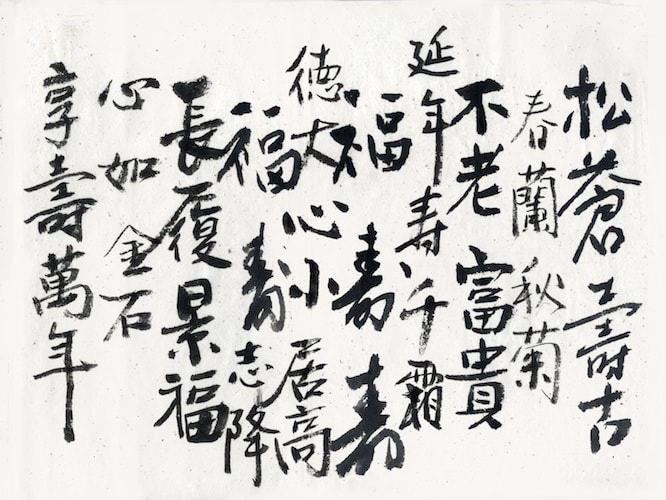 松蒼壽古
春蘭秋菊
不老富貴
延年寿千霜
福寿寿
德大心小居高
福寿志降
長履景福
心如金石
享壽萬年